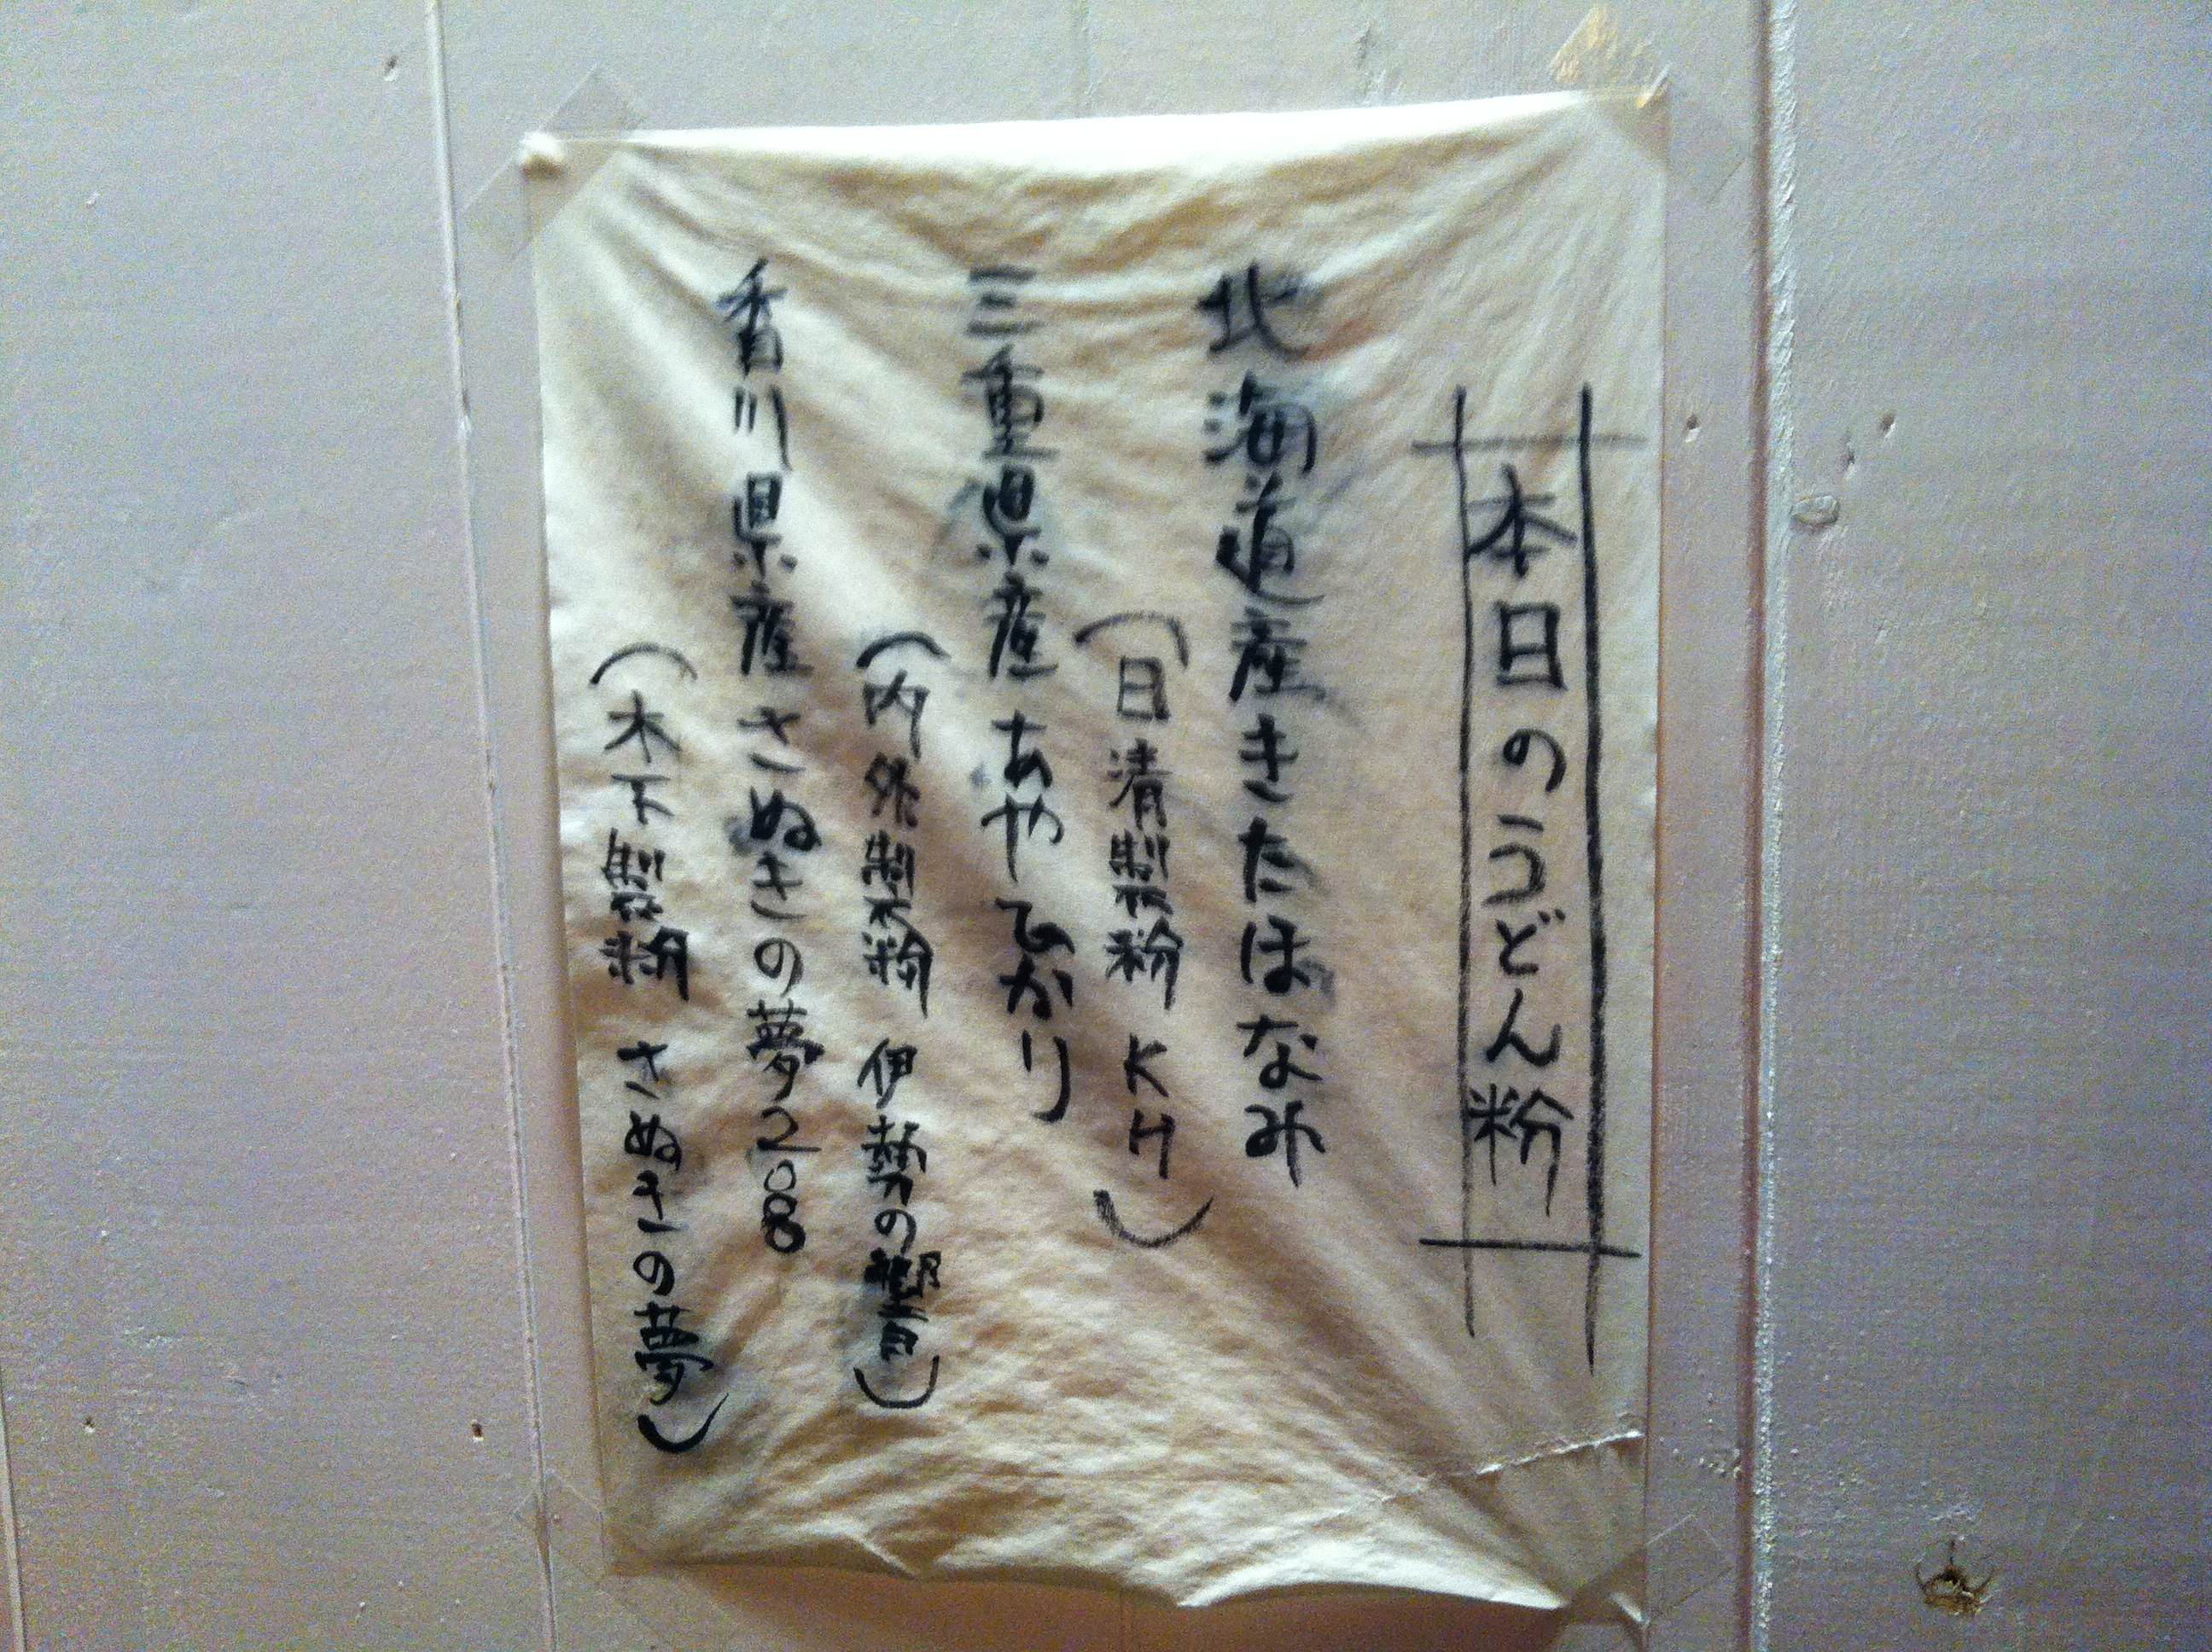 本日のうどん粉
北海道産きたほなみ
(日清製粉 KH)
三重県産 あやひかり
(内外製粉 伊勢の響)
香川県産 さぬきの夢2008
(木下製粉 さぬきの夢)